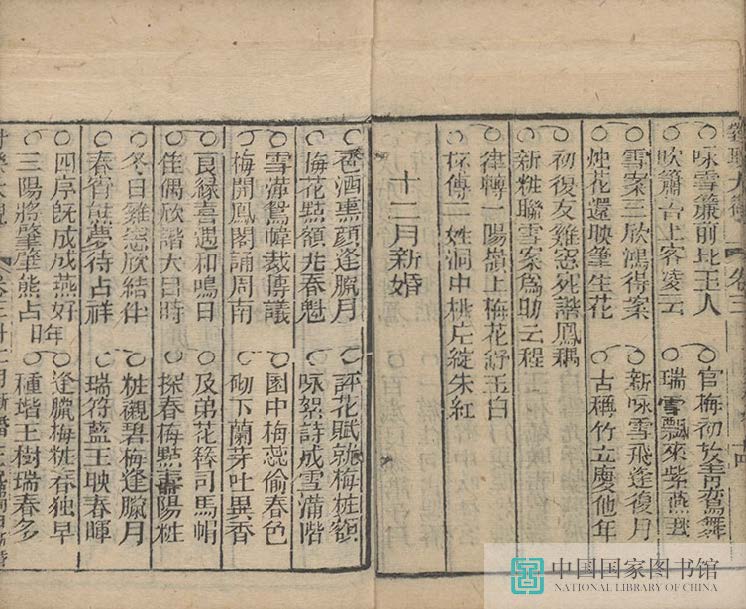 咏雪簾前比玉人
官梅初放青鸞舞
吹簫台上客凌云
瑞雪飄來紫燕
雪案三欣鴻得案
新咏雪飛逢復月
烛花還映筆生花
古稱竹立慶他年
初復友雞窓死諧鳳耦
新粧聯雪案為助云程
律轉一陽嶺上梅花舒玉白
杯傳二姓洞中桃片綻朱紅
十二月新婚
香酒熏顔逢臘月
評花賦就梅粧額
梅花點額兆春魁
咏絮詩成雪滿階
雪海鴛幃裁博議
園中梅蕊偷春色
梅開鳳閣誦周南
砌下蘭芽吐異香
良緣喜遇和鳴日
及弟花簪司馬帽
佳偶欣諧大吕時
探春梅點壽陽粧
冬日雞窓欣結伴
粧觀碧梅逢臘月
春宵熊夢待占祥
瑞符藍玉映春暉
四序既成成燕好年
逢臘梅粧春独早
三陽將肇肇熊占日
種堦玉樹瑞春多
中国国家图书馆
NATIONAL LIBRARY OF CHINA